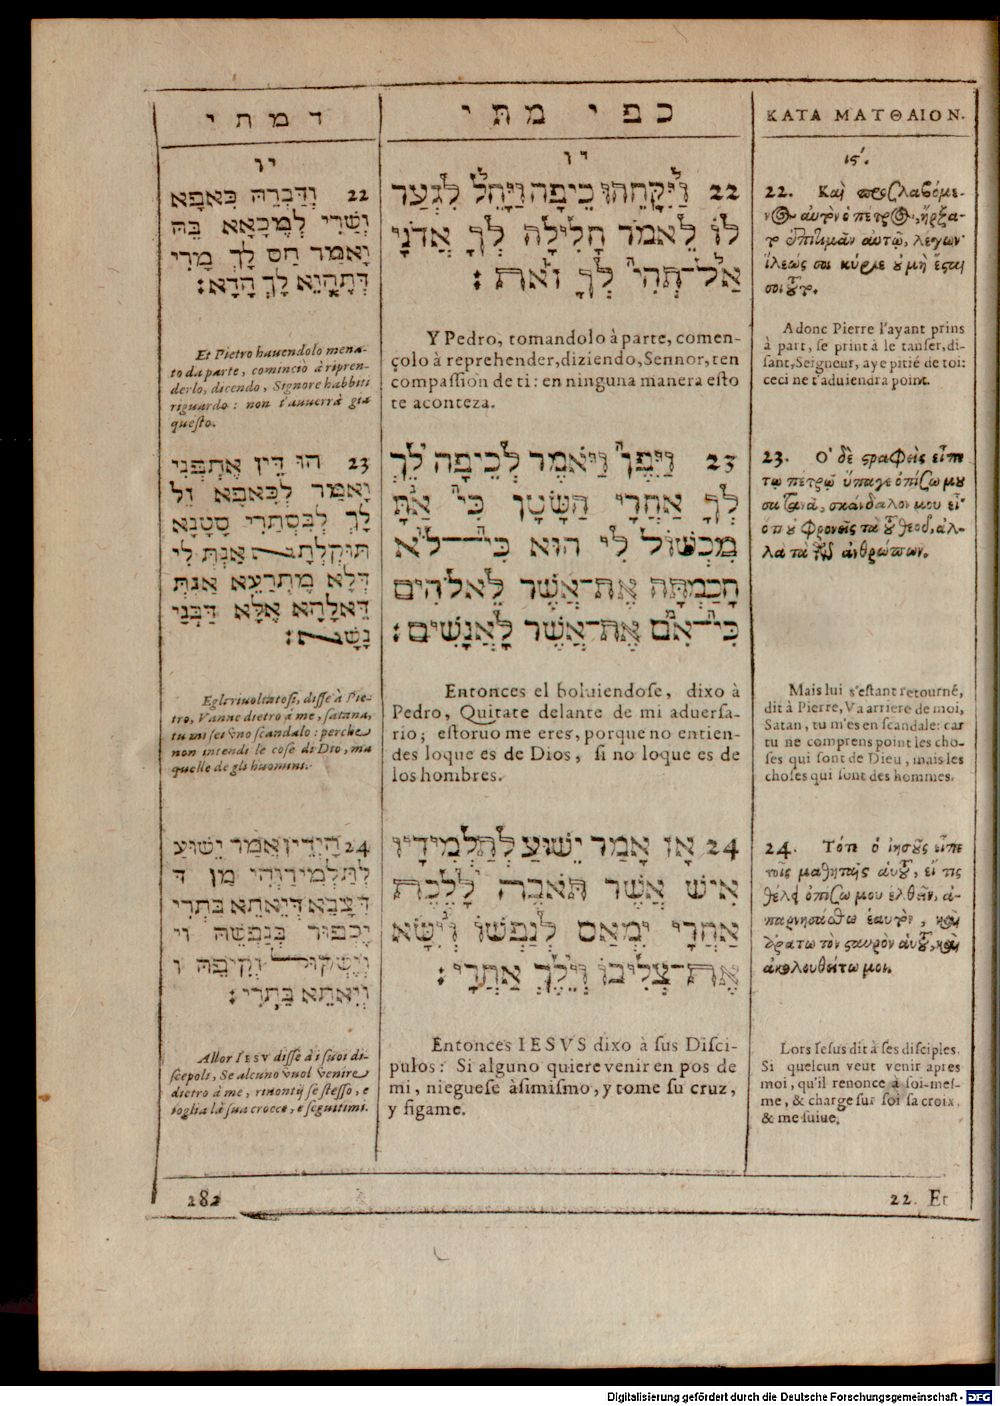 דמתי
יו
22 וְדַבְרֵהּ כִּאפָא
וְשָׁרִי לְמֶכָאָא בֵּהּ
וָאמַר חַס לָךְ מָרִי
דְּתֶהְוֵא לָךְ הָדָא:
Et Pietro hauendolo mena-
to da parte, cominciò à ripren-
derlo, dicendo, Signore habbiti
riguardo: non t'auuerrà gia
questo.
23 הוּ דֵּין אֶתְפְּנִי
וָאמַר לְכִּאפָא זֵל
לָךְ לְבִסְתַּרִי סָטָנָא
תּוּקַלְתָּא אַנְתְּ לִי
דְּלָא מֶתְרַעֵא אַנְתְּ
דַּאלָהָא אֶלָּא דַּבְנַי
נָשָׁא:
Egli riuoltatosi, disse à Pie-
tro, Vanne dietro à me, satana,
tu mi sei vno scandalo: perche
non intendi le cose di Dio, ma
quelle de gli huomini.
24 הָיְדֵין אֲמַר יֵשׁוּעַ
לְתַלְמִידַוְהִי מַן דּ
דְּצָבֵא דְּיִאתֵא בָּתְרִי
יֶכְפּוּר בְּנַפְשֵׁהּ וי
וְיֶשְׁקוּל זְקִיפֵהּ ו
וְיִאתֵא בָּתְרִי:
Allor IESV disse à i suoi di-
scepoli, Se alcuno vuol venire
dietro à me, rinontij se stesso, e
toglia la sua croce, e seguitimi.
כפי מתי
יו
22 וַיִּקָּחֵהוּ כֵיפָה וַיָּחֶל לִגְעַר
לוֹ לֵאמֹר חָלִילָה לְךָ אֲדֹנָי
אַל־תְּהִי לְךָ זֹאת:
Y Pedro, tomandolo à parte, comen-
çolo à reprehender, diziendo, Sennor, ten
compassion de ti: en ninguna manera esto
te aconteza.
23 וַיִּפֶן וַיֹּאמֶר לְכֵיפָה לֵךְ
לְךָ אַחֲרַי הַשָּׂטָן כִּי אַתָּ
מִכְשׁוֹל לִי הוּא כִּי־לֹא
חָכַמְתָּה אֶת־אֲשֶׁר לֵאלֹהִים
כִּי־אִם אֶת־אֲשֶׁר לָאֲנָשִׁים:
Entonces el boluiendose, dixo à
Pedro, Quitate delante de mi aduersa-
rio; estoruo me eres, porque no entien-
des loque es de Dios, si no loque es de
los hombres.
24 אָז אָמַר יֵשׁוּעַ לְתַלְמִידָיו
אִישׁ אֲשֶׁר תֹּאבֶה לָלֶכֶת
אַחֲרַי יִמְאַס לְנַפְשׁוֹ וְיִשָּׂא
אֶת־צְלִיבוֹ וְיֵלֶךְ אַחֲרָי:
Entonces IESVS dixo à sus Disci-
pulos: Si alguno quiere venir en pos de
mi, nieguese àsimismo, y tome su cruz,
y sigame.
ΚΑΤΑ ΜΑΤΘΑΙΟΝ.
ις'.
22. Καὶ προσλαβόμε-
νος αὐτὸν ὁ πέτρος, ἤρξα-
το ἐπιτιμᾶν αὐτῷ, λέγων·
ἵλεώς σοι κύριε οὐ μὴ ἔσται
σοι τοῦτο.
Adonc Pierre l'ayant prins
à part, se print à le tanser, di-
sant, Seigneur, aye pitié de toi:
ceci ne t'aduiendra point.
23. Ὁ δὲ στραφεὶς εἶπε
τῷ πέτρῳ ὕπαγε ὀπίσω μου
σατανᾶ, σκάνδαλον μου εἶ
ὅτι οὐ φρονεῖς τὰ τοῦ θεοῦ, ἀλ-
λὰ τὰ τῶν ἀνθρώπων.
Mais lui s'estant retourné,
dit à Pierre, Va arriere de moi,
Satan, tu m'es en scandale: car
tu ne comprens point les cho-
ses qui sont de Dieu, mais les
choses qui sont des hommes.
24. Τότε ὁ ἰησοῦς εἶπε
τοῖς μαθηταῖς αὐτοῦ, εἴ τις
θέλει ὀπίσω μου ἐλθεῖν, ἀ-
παρνησάσθω ἑαυτὸν, καὶ
ἀράτω τὸν σταυρὸν αὐτοῦ, καὶ
ἀκολουθείτω μοι.
Lors Iesus dit à ses disciples,
Si quelcun veut venir apres
moi, qu'il renonce à soi-mes-
me, & charge sur soi sa croix,
& me suiue.
282
22. Et
Digitalisierung gefördert durch die Deutsche Forschungsgemeinschaft - DFG